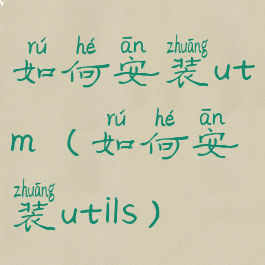 rú hé ān zhuāng
如何安装ut
rú hé ān
m（如何安
zhuāng
装utils）